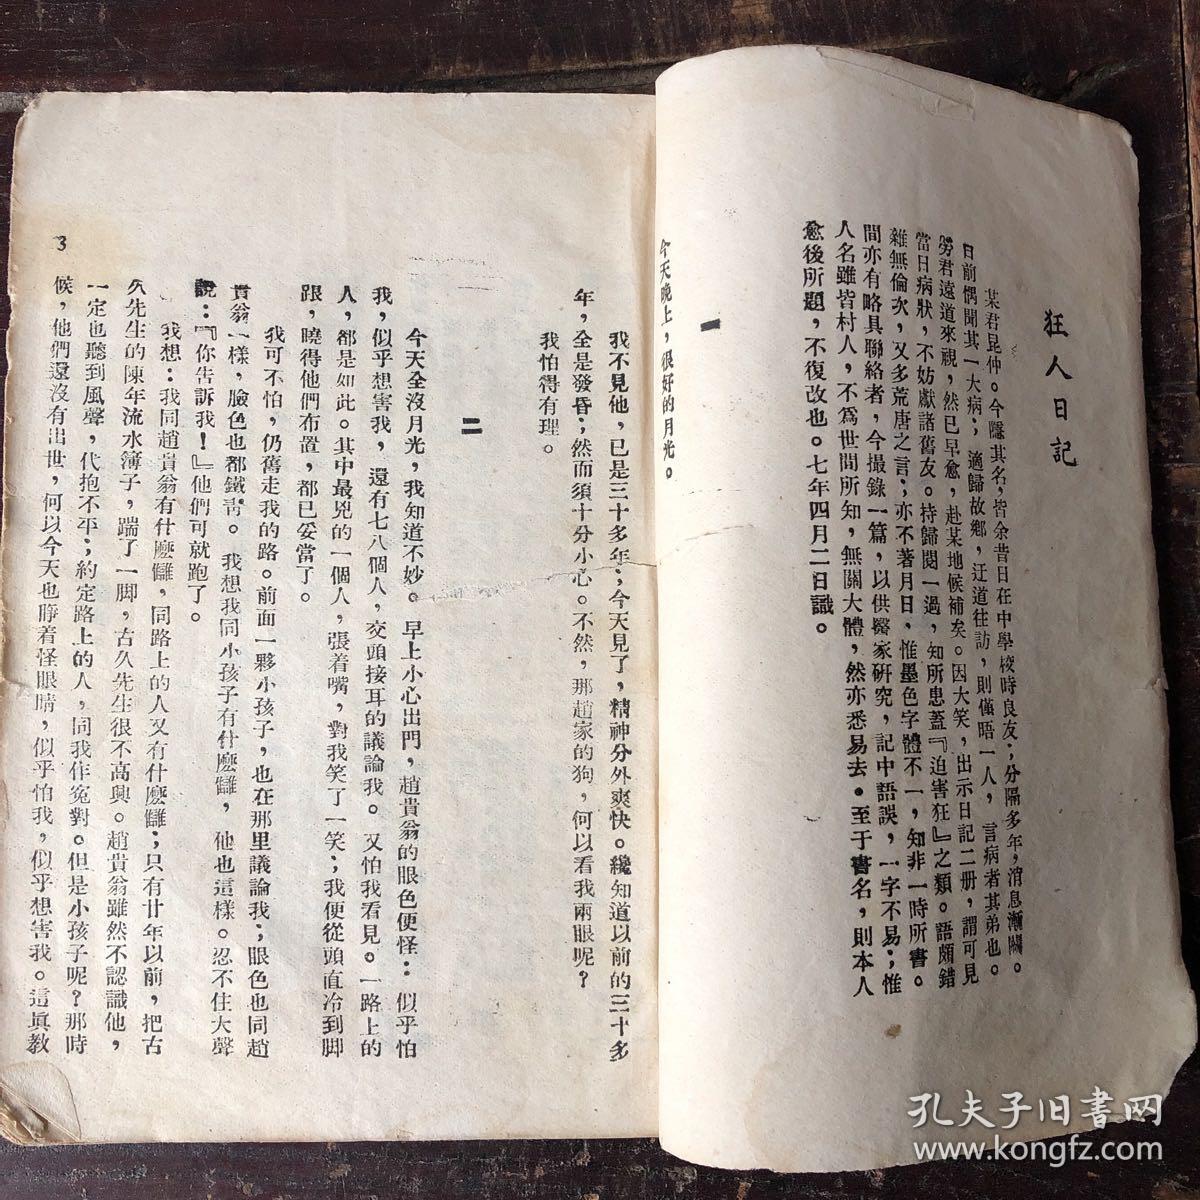 狂人日記
某君昆仲。今隱其名，皆余昔日在中學校時良友；分隔多年，消息漸闕。
日前偶聞其一大病；適歸故鄉，迂道往訪，則僅晤一人，言病者其弟也。
勞君遠道來視，然已早愈，赴某地候補矣。因大笑，出示日記二册，謂可見
當日病狀，不妨獻諸舊友。持歸閱一過，知所患蓋『迫害狂』之類。語頗錯
雜無倫次，又多荒唐之言；亦不著月日，惟墨色字體不一，知非一時所書。
間亦有略具聯絡者，今撮錄一篇，以供醫家研究，記中語誤，一字不易；惟
人名雖皆村人，不爲世間所知，無關大體，然亦悉易去。至于書名，則本人
愈後所題，不復改也。七年四月二日識。
一
今天晚上，很好的月光。
我不見他，已是三十多年；今天見了，精神分外爽快。纔知道以前的三十多
年，全是發昏；然而須十分小心。不然，那趙家的狗，何以看我兩眼呢？
我怕得有理。
二
今天全没月光，我知道不妙。早上小心出門，趙貴翁的眼色便怪：似乎怕
我，似乎想害我，還有七八個人，交頭接耳的議論我。又怕我看見。一路上的
人，都是如此。其中最兇的一個人，張着嘴，對我笑了一笑；我便從頭直冷到脚
跟，曉得他們布置，都已妥當了。
我可不怕，仍舊走我的路。前面一夥小孩子，也在那里議論我；眼色也同趙
貴翁一樣，臉色也都鐵靑。我想我同小孩子有什麽讎，他也這樣。忍不住大聲
說：『你告訴我！』他們可就跑了。
我想：我同趙貴翁有什麽讎，同路上的人又有什麽讎；只有廿年以前，把古
久先生的陳年流水簿子，踹了一脚，古久先生很不高興。趙貴翁雖然不認識他，
一定也聽到風聲，代抱不平；約定路上的人，同我作冤對。但是小孩子呢？那時
候，他們還沒有出世，何以今天也睜着怪眼睛，似乎怕我，似乎想害我。這眞敎
3
孔夫子旧書网
www.kongfz.com